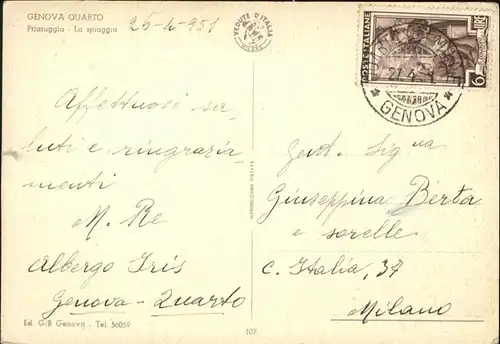 GENOVA QUARTO
Priaruggia - La spiaggia
26-4-951
VEDUTE D'ITALIA
MILANO
POSTE ITALIANE
GENOVA
Affettuosi sa-
luti e ringrazia-
menti
M. Re
Albergo Iris
Genova-Quarto
Gent. Sig.na
Giuseppina Berta
e sorelle
C. Italia, 37
Milano
Ed. G/B Genova - Tel. 56059
107